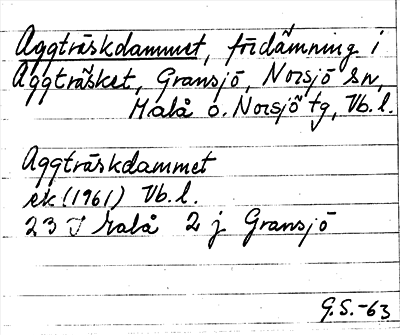 Aggträskdammet, fördämning i
Aggträsket, Gransjö, Norsjö sn,
Malå o. Norsjö tg, Vb. l.
Aggträskdammet
ek (1961) Vb. l.
23 J Malå 2 j Gransjö
G.S.-63